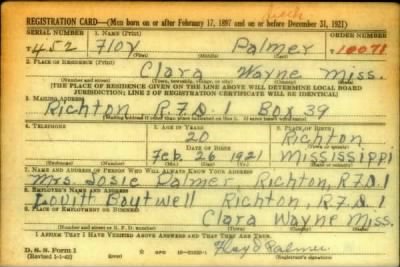 REGISTRATION CARD—(Men born on or after February 17, 1897 and on or before December 31, 1921)
SERIAL NUMBER 1. NAME (Print) ORDER NUMBER
T452 Floy Palmer 10078
(First) (Middle) (Last)
2. PLACE OF RESIDENCE (Print)
Clara Wayne Miss.
(Number and street) (Town, township, village, or city) (County) (State)
[THE PLACE OF RESIDENCE GIVEN ON THE LINE ABOVE WILL DETERMINE LOCAL BOARD
JURISDICTION; LINE 2 OF REGISTRATION CERTIFICATE WILL BE IDENTICAL]
3. MAILING ADDRESS
Richton R.F.D.1 Box 39
[Mailing address if other than place indicated on line 2. If same insert word same]
4. TELEPHONE 5. AGE IN YEARS 6. PLACE OF BIRTH
20 Richton
DATE OF BIRTH (Town or county)
Feb. 26 1921 Mississippi
(Exchange) (Number) (Mo.) (Day) (Yr.) (State or country)
7. NAME AND ADDRESS OF PERSON WHO WILL ALWAYS KNOW YOUR ADDRESS
Mrs. Josie Palmer Richton, R.F.D.1
8. EMPLOYER'S NAME AND ADDRESS
Boutwell Richton, R.F.D.1
9. PLACE OF EMPLOYMENT OR BUSINESS
Clara Wayne Miss.
(Number and street or R. F. D. number) (Town) (County) (State)
I AFFIRM THAT I HAVE VERIFIED ABOVE ANSWERS AND THAT THEY ARE TRUE.
D. S. S. Form 1 Floyd Palmer
(Revised 1-1-42) (over) GPO (Registrant's signature)